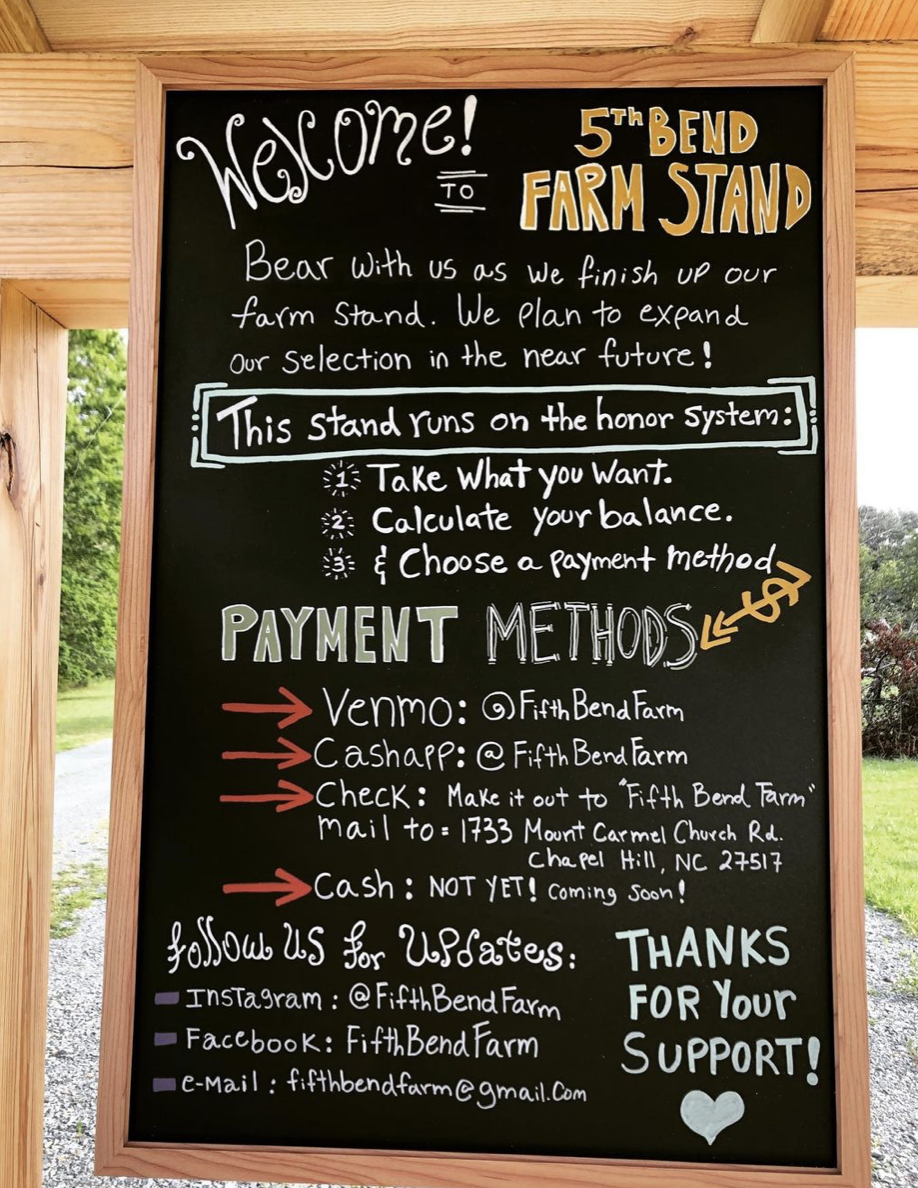 Welcome!
TO
5TH BEND
FARM STAND
Bear with us as we finish up our
farm stand. We plan to expand
our selection in the near future!
This stand runs on the honor system:
1 Take what you want.
2 Calculate your balance.
3 & Choose a payment method
$
PAYMENT METHODS
Venmo: @FifthBendFarm
Cashapp: @FifthBendFarm
Check: Make it out to "Fifth Bend Farm"
mail to: 1733 Mount Carmel Church Rd.
Chapel Hill, NC 27517
Cash: NOT YET! coming soon!
follow us for updates:
Instagram: @FifthBendFarm
Facebook: FifthBendFarm
e-mail: fifthbendfarm@gmail.com
THANKS
FOR YOUR
SUPPORT!